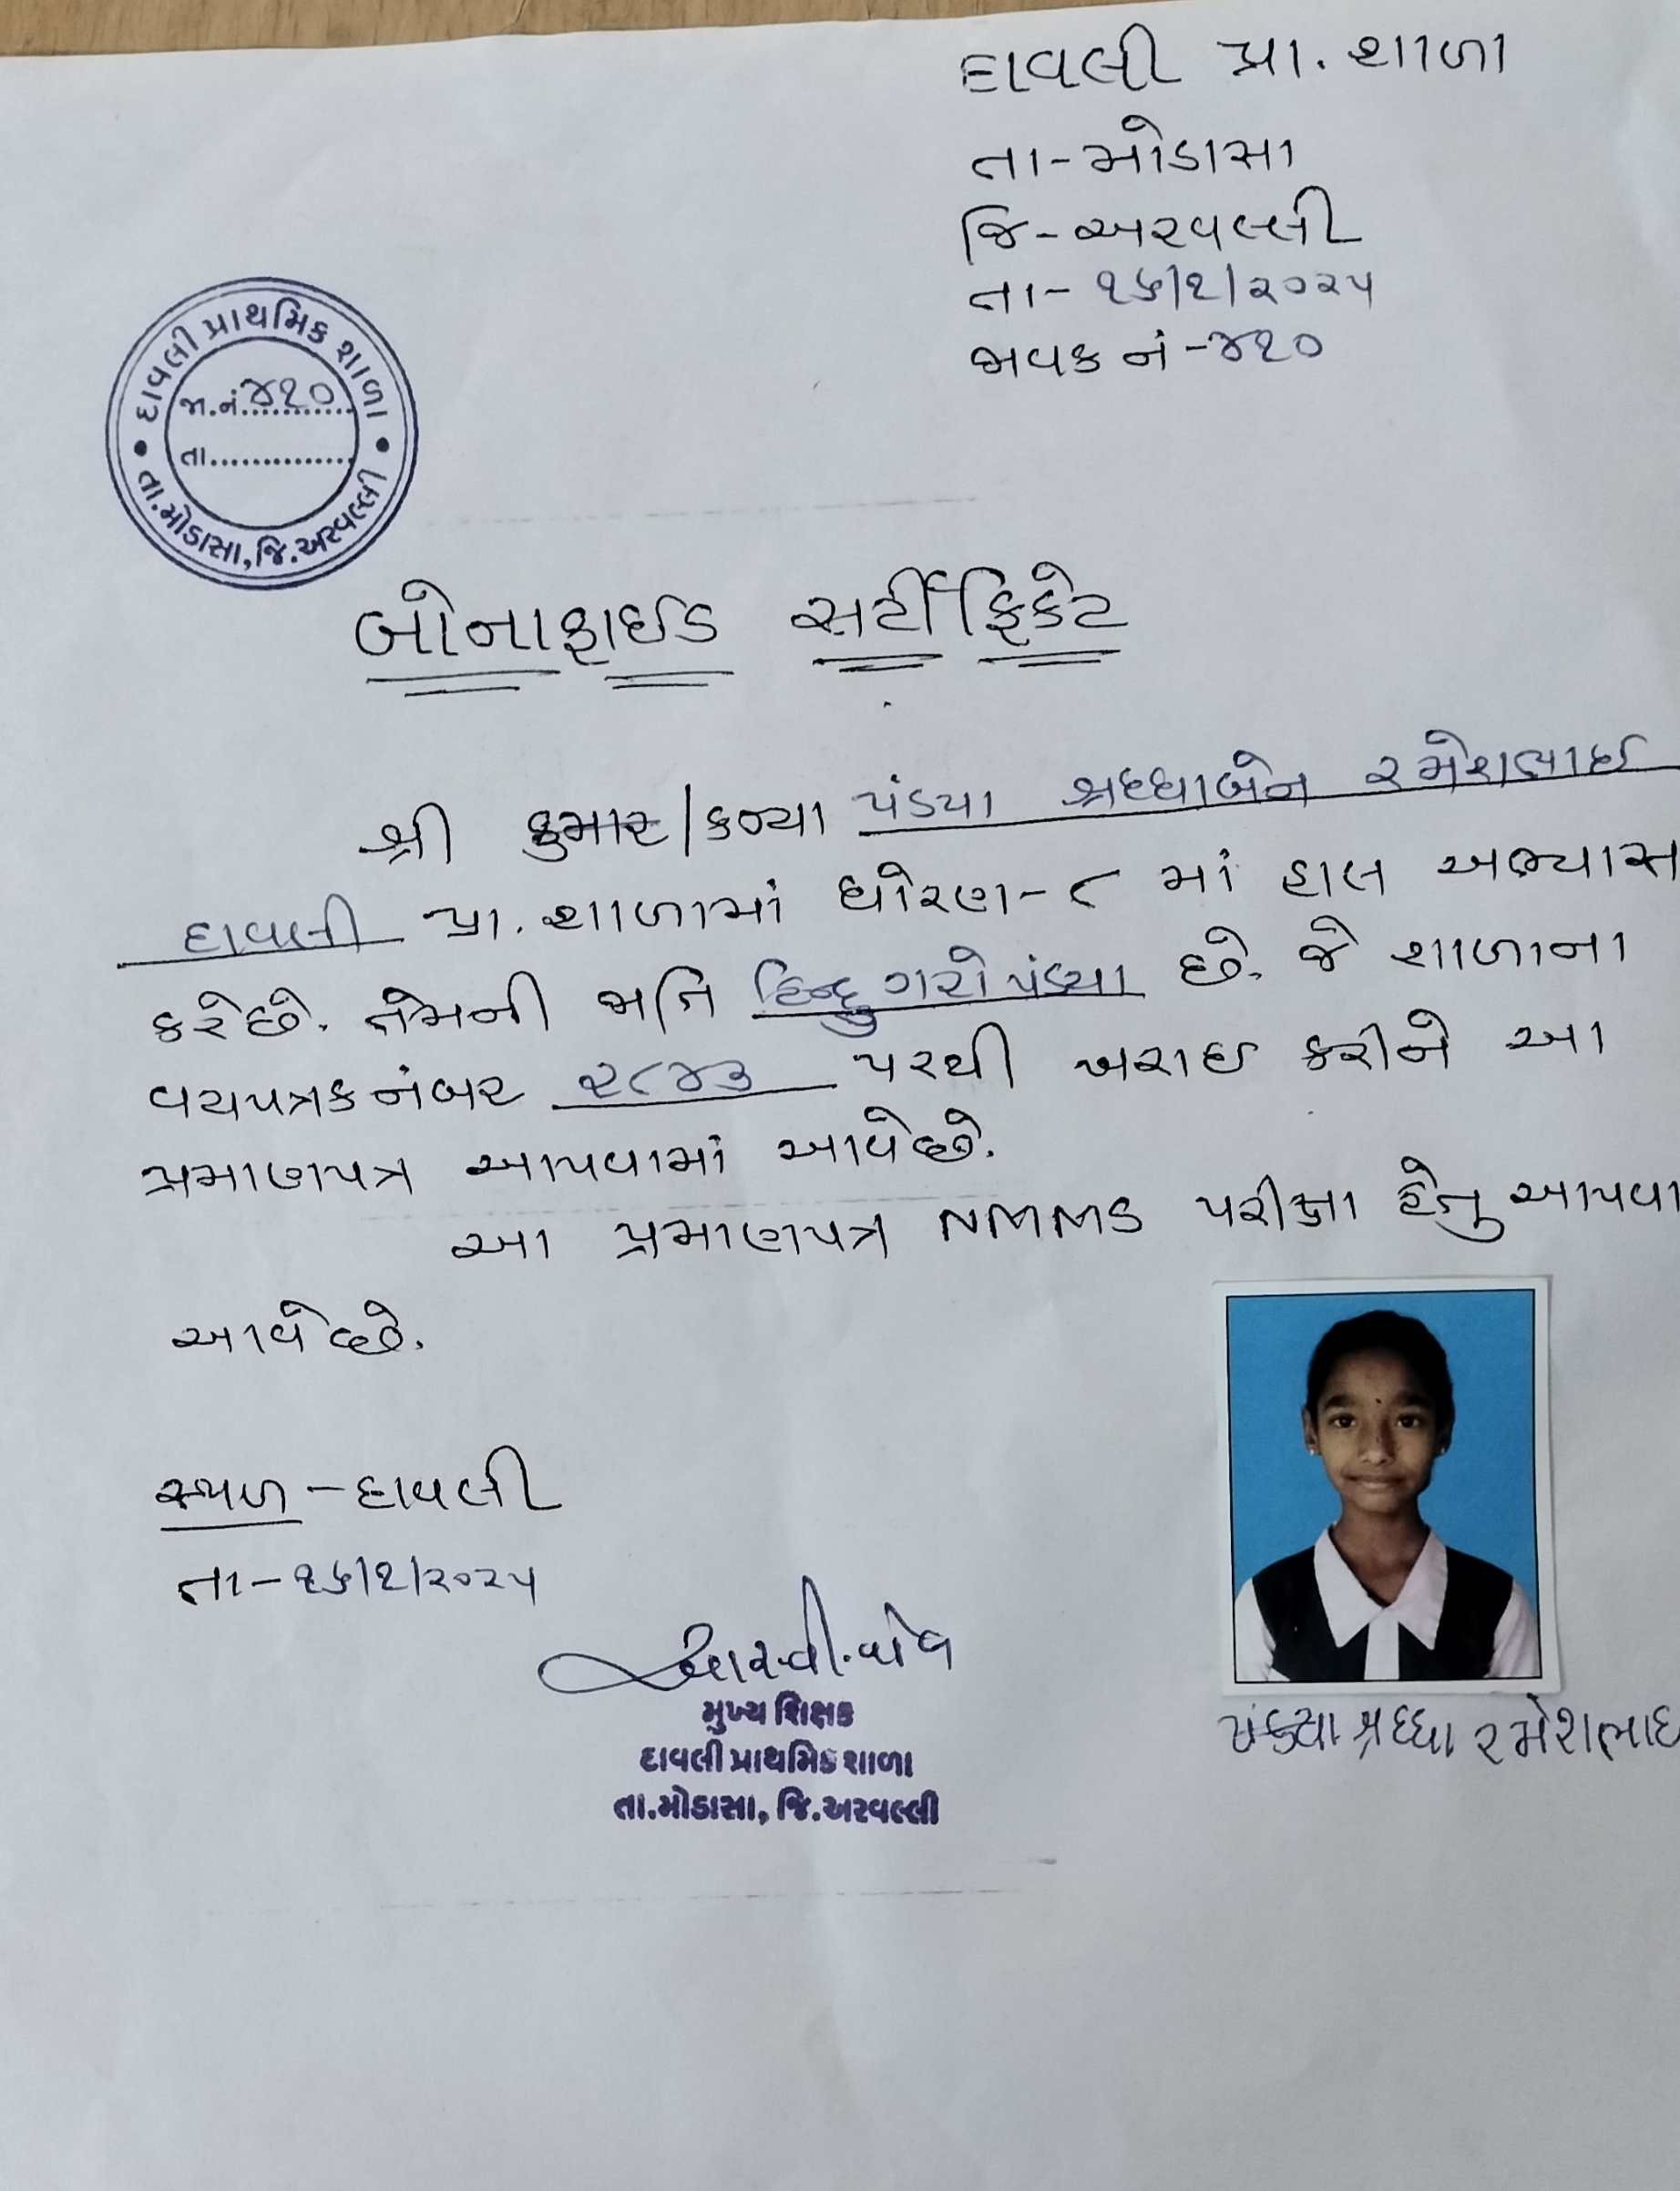 દાવલી પ્રા. શાળા
તા-મોડાસા
જિ-અરવલ્લી
તા- ૧૬/૧/૨૦૨૫
જાવક નં -૪૧૦
દાવલી પ્રાથમિક શાળા
જા.નં.૪૧૦
તા..............
તા.મોડાસા,જિ.અરવલ્લી
બોનાફાઈડ સર્ટીફિકેટ
શ્રી કુમાર/કન્યા પંડયા શ્રધ્ધાબેન રમેશભાઈ
દાવલી પ્રા. શાળામાં ધોરણ-૮ માં હાલ અભ્યાસ
કરેછે. તેમની જાતિ હિન્દુ ગરો પંડ્યા છે. જે શાળાના
વયપત્રક નંબર ૨૮૪૩ પરથી ખરાઇ કરીને આ
પ્રમાણપત્ર આપવામાં આવેછે.
આ પ્રમાણપત્ર NMMS પરીક્ષા હેતુ આપવા
આવેછે.
સ્થળ -દાવલી
તા-૧૬/૧/૨૦૨૫
મુખ્ય શિક્ષક
દાવલી પ્રાથમિક શાળા
તા.મોડાસા, જિ.અરવલ્લી
પંડયા શ્રધ્ધા રમેશભાઇ